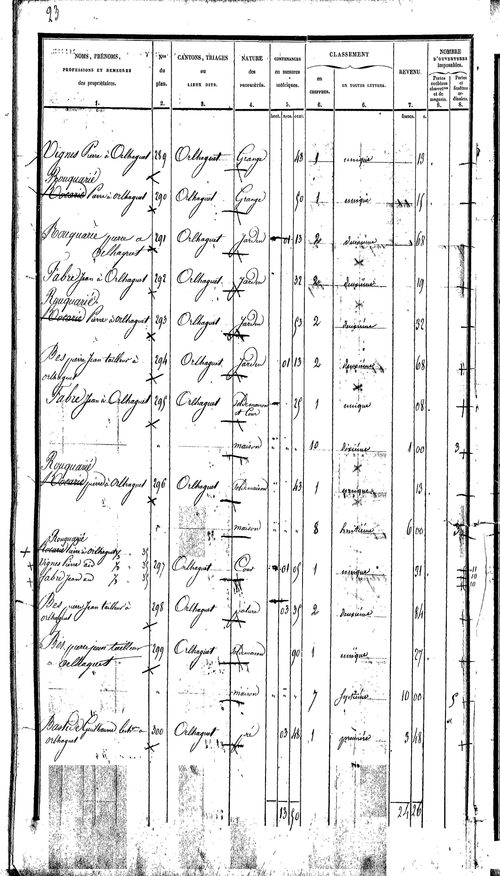 23
NOMS, PRÉNOMS, PROFESSIONS ET DEMEURES des propriétaires. Nos du plan. CANTONS, TRIAGES ou LIEUX DITS. NATURE des PROPRIÉTÉS. CONTENANCES EN MESURES métriques. CLASSEMENT en CHIFFRES. EN TOUTES LETTRES. REVENU. NOMBRE D'OUVERTURES imposables.
1. 2. 3. 4. 5. 6. 6. 7. 8. 8.
hect. ares. cent. francs. c.
Vignes Pierre à Orlhaguet 289 Orlhaguet Grange 43 1 unique 13
Rouquarié
Pierre à Orlhaguet 290 Orlhaguet Grange 50 1 unique 15
Rouquarié pierre a 291 Orlhaguet Jardin 01 13 2 deuxième 68
Orlhaguet
Fabre Jean à Orlhaguet 292 Orlhaguet Jardin 32 2 deuxième 19
Rouquarié
Pierre à orlhaguet 293 Orlhaguet Jardin 53 2 deuxième 32
Bes pierre Jean tailleur à 294 Orlhaguet Jardin 01 13 2 deuxième 68
orlhaguet
Fabre Jean à Orlhaguet 295 Orlhaguet Sol de maison et Cour 25 1 unique 08
maison 10 dixième 1 00 3
Rouquarié
pierre à Orlhaguet 296 Orlhaguet Sol de maison 43 1 unique 13
maison 8 huitième 6 00
Rouquarié
Pierre à orlhaguet 1/3
Vignes Pierre id 1/3 297 Orlhaguet Cour 01 05 1 unique 31
fabre Jean id 1/3
Bes pierre Jean tailleur à 298 Orlhaguet pature 03 35 2 deuxième 84
orlhaguet
Bes pierre jean tailleur 299 Orlhaguet Sol de maison 90 1 unique 27
a orlhaguet
maison 7 septième 10 00 5
300 Orlhaguet pré 03 48 1 première 3 48
orlhaguet
13 50 24 26